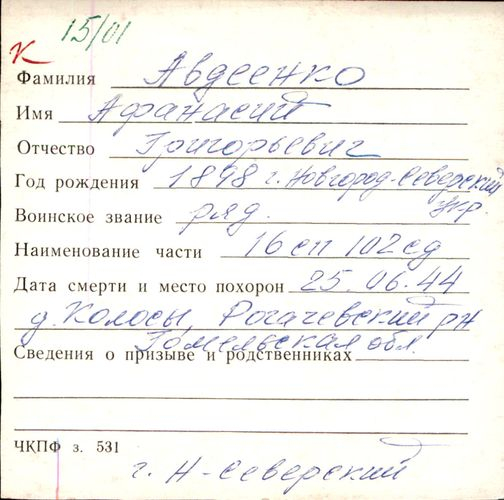 15/01
К
Фамилия Авдеенко
Имя Афанасий
Отчество Григорьевич
Год рождения 1898 г. Новгород-Северский
Воинское звание ряд. Укр.
Наименование части 16 сп 102 сд
Дата смерти и место похорон 25.06.44
д. Колосы, Рогачевский рн
Гомельская обл.
Сведения о призыве и родственниках
ЧКПФ з. 531
г. Н-Северский